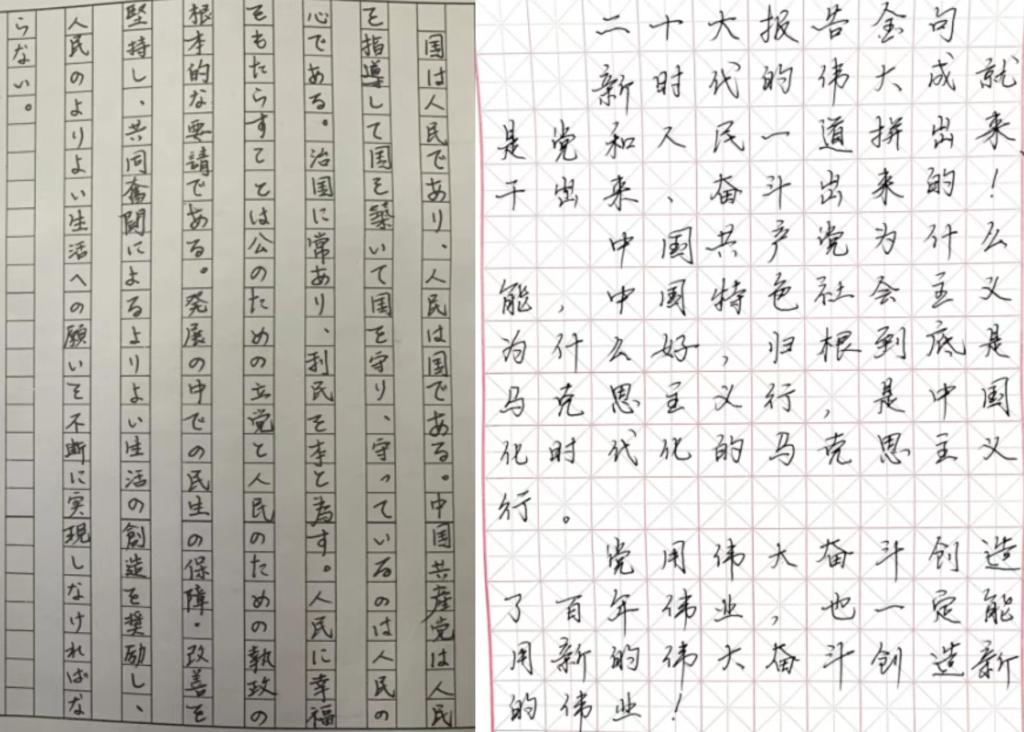 国は人民であり、人民は国である。中国共産党は人民
を指導して国を築いて国を守り、守っているのは人民の
心である。治国に常あり、利民を本と為す。人民に幸福
をもたらすてとは公のための立党と人民のための執政の
根本的な要請である。発展の中での民生の保障・改善を
堅持し、共同奮闘によるよりよい生活の創造を奨励し、
人民のよりよい生活への願いを不断に実現しなければな
らない。
二十大报告金句
新时代的伟大成就
是党和人民一道拼出来、
干出来、奋斗出来的！
中国共产党为什么
能，中国特色社会主义
为什么好，归根到底是
马克思主义行，是中国
化时代化的马克思主义
行。
党用伟大奋斗创造
了百年伟业，也一定能
用新的伟大奋斗创造新
的伟业！